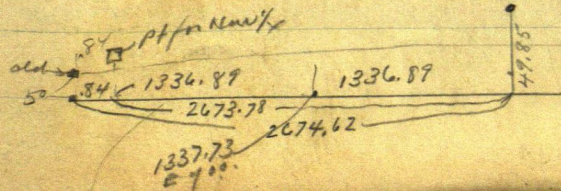 .84 pt for New 1/4
old
50 .84 1336.89 1336.89 49.85
2673.78
2674.62
1337.73